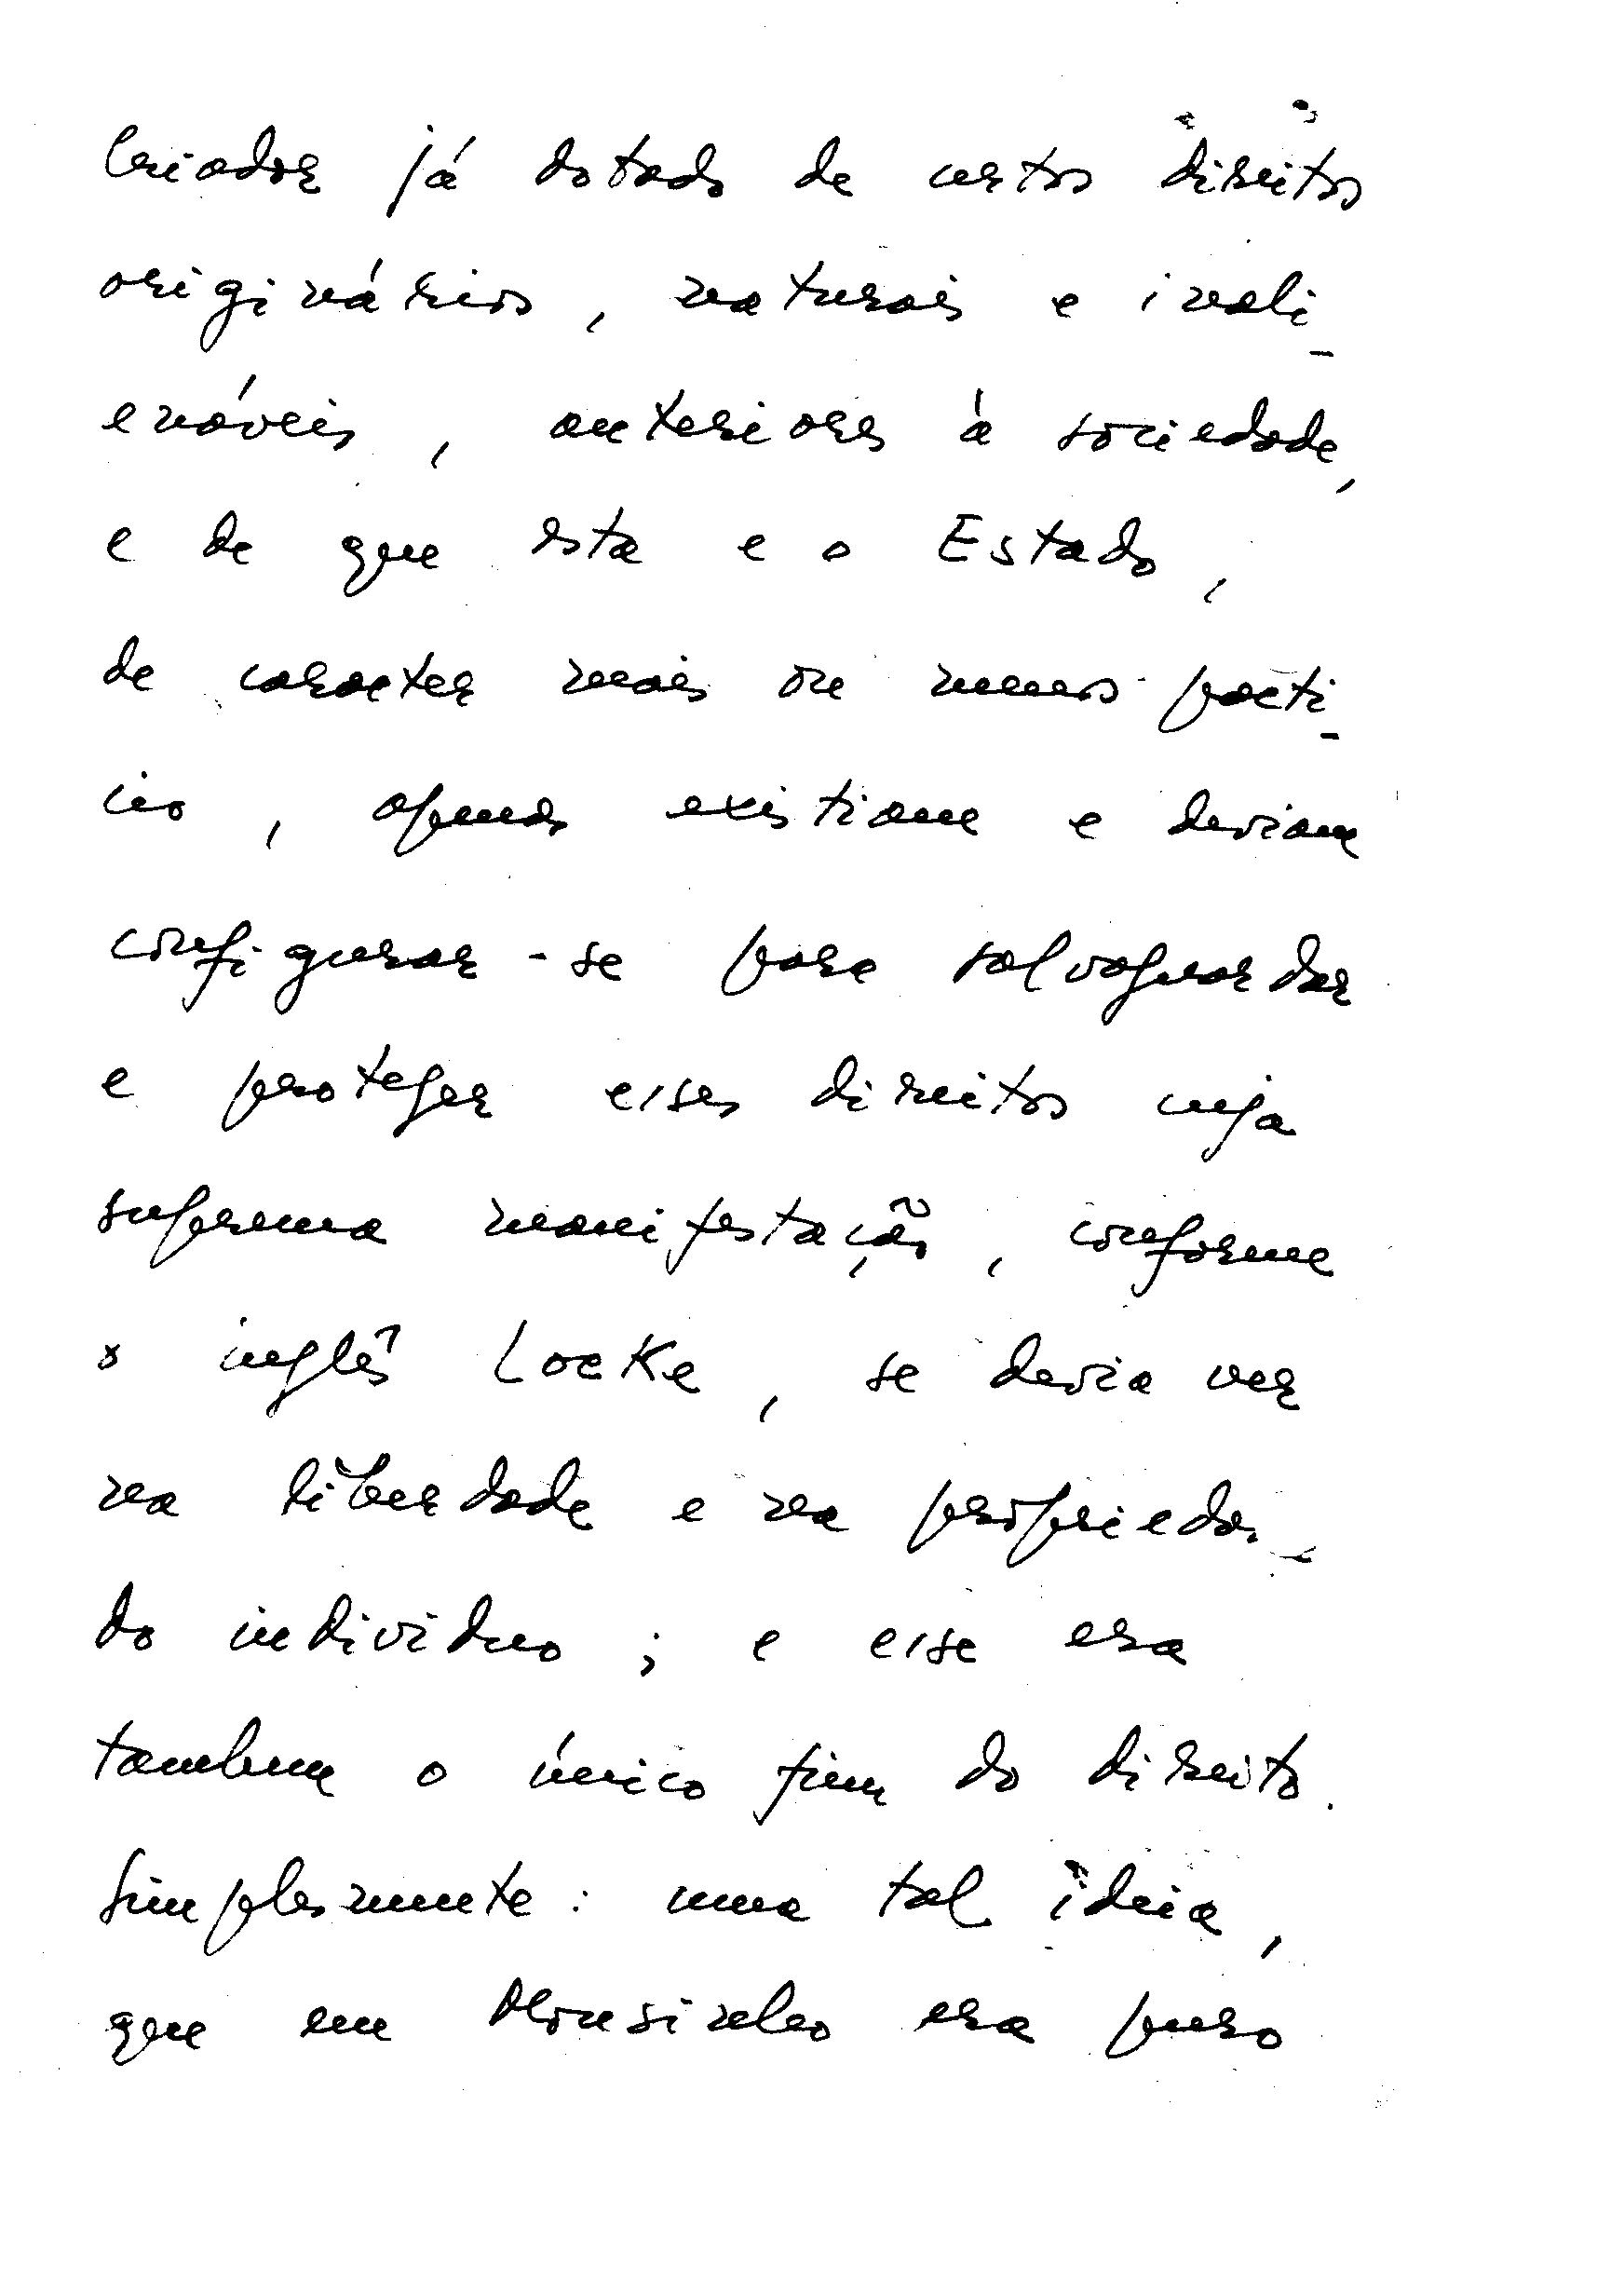 Criador já dotado de certos direitos
originários, naturais e inali-
enáveis, anteriores à sociedade,
e de que esta e o Estado,
de caracter mais ou menos pacti-
cio, apenas existiam e deviam
configurar-se para salvaguardar
e proteger esses direitos cuja
suprema manifestação, conforme
o inglês Locke, se devia ver
na liberdade e na proprieda-
do individuo; e esse era
tambem o único fim do direito.
Simplesmente: uma tal ideia,
que em Mousinho era puro